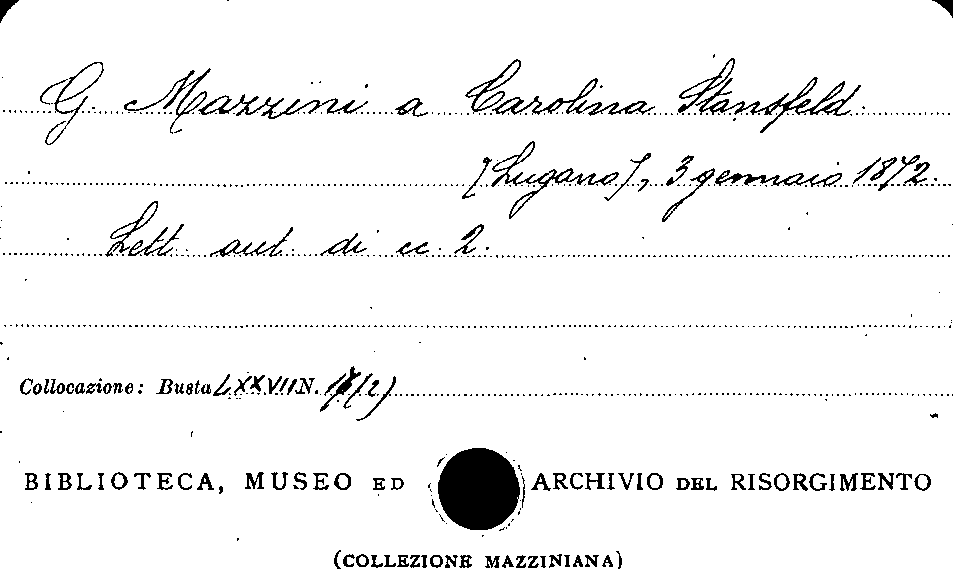 G. Mazzini a Carolina Stansfeld.
[Lugano], 3 gennaio 1872.
Lett. aut. di cc. 2.
Collocazione: Busta LXXVII N.
BIBLIOTECA, MUSEO ED ARCHIVIO DEL RISORGIMENTO
(COLLEZIONE MAZZINIANA)